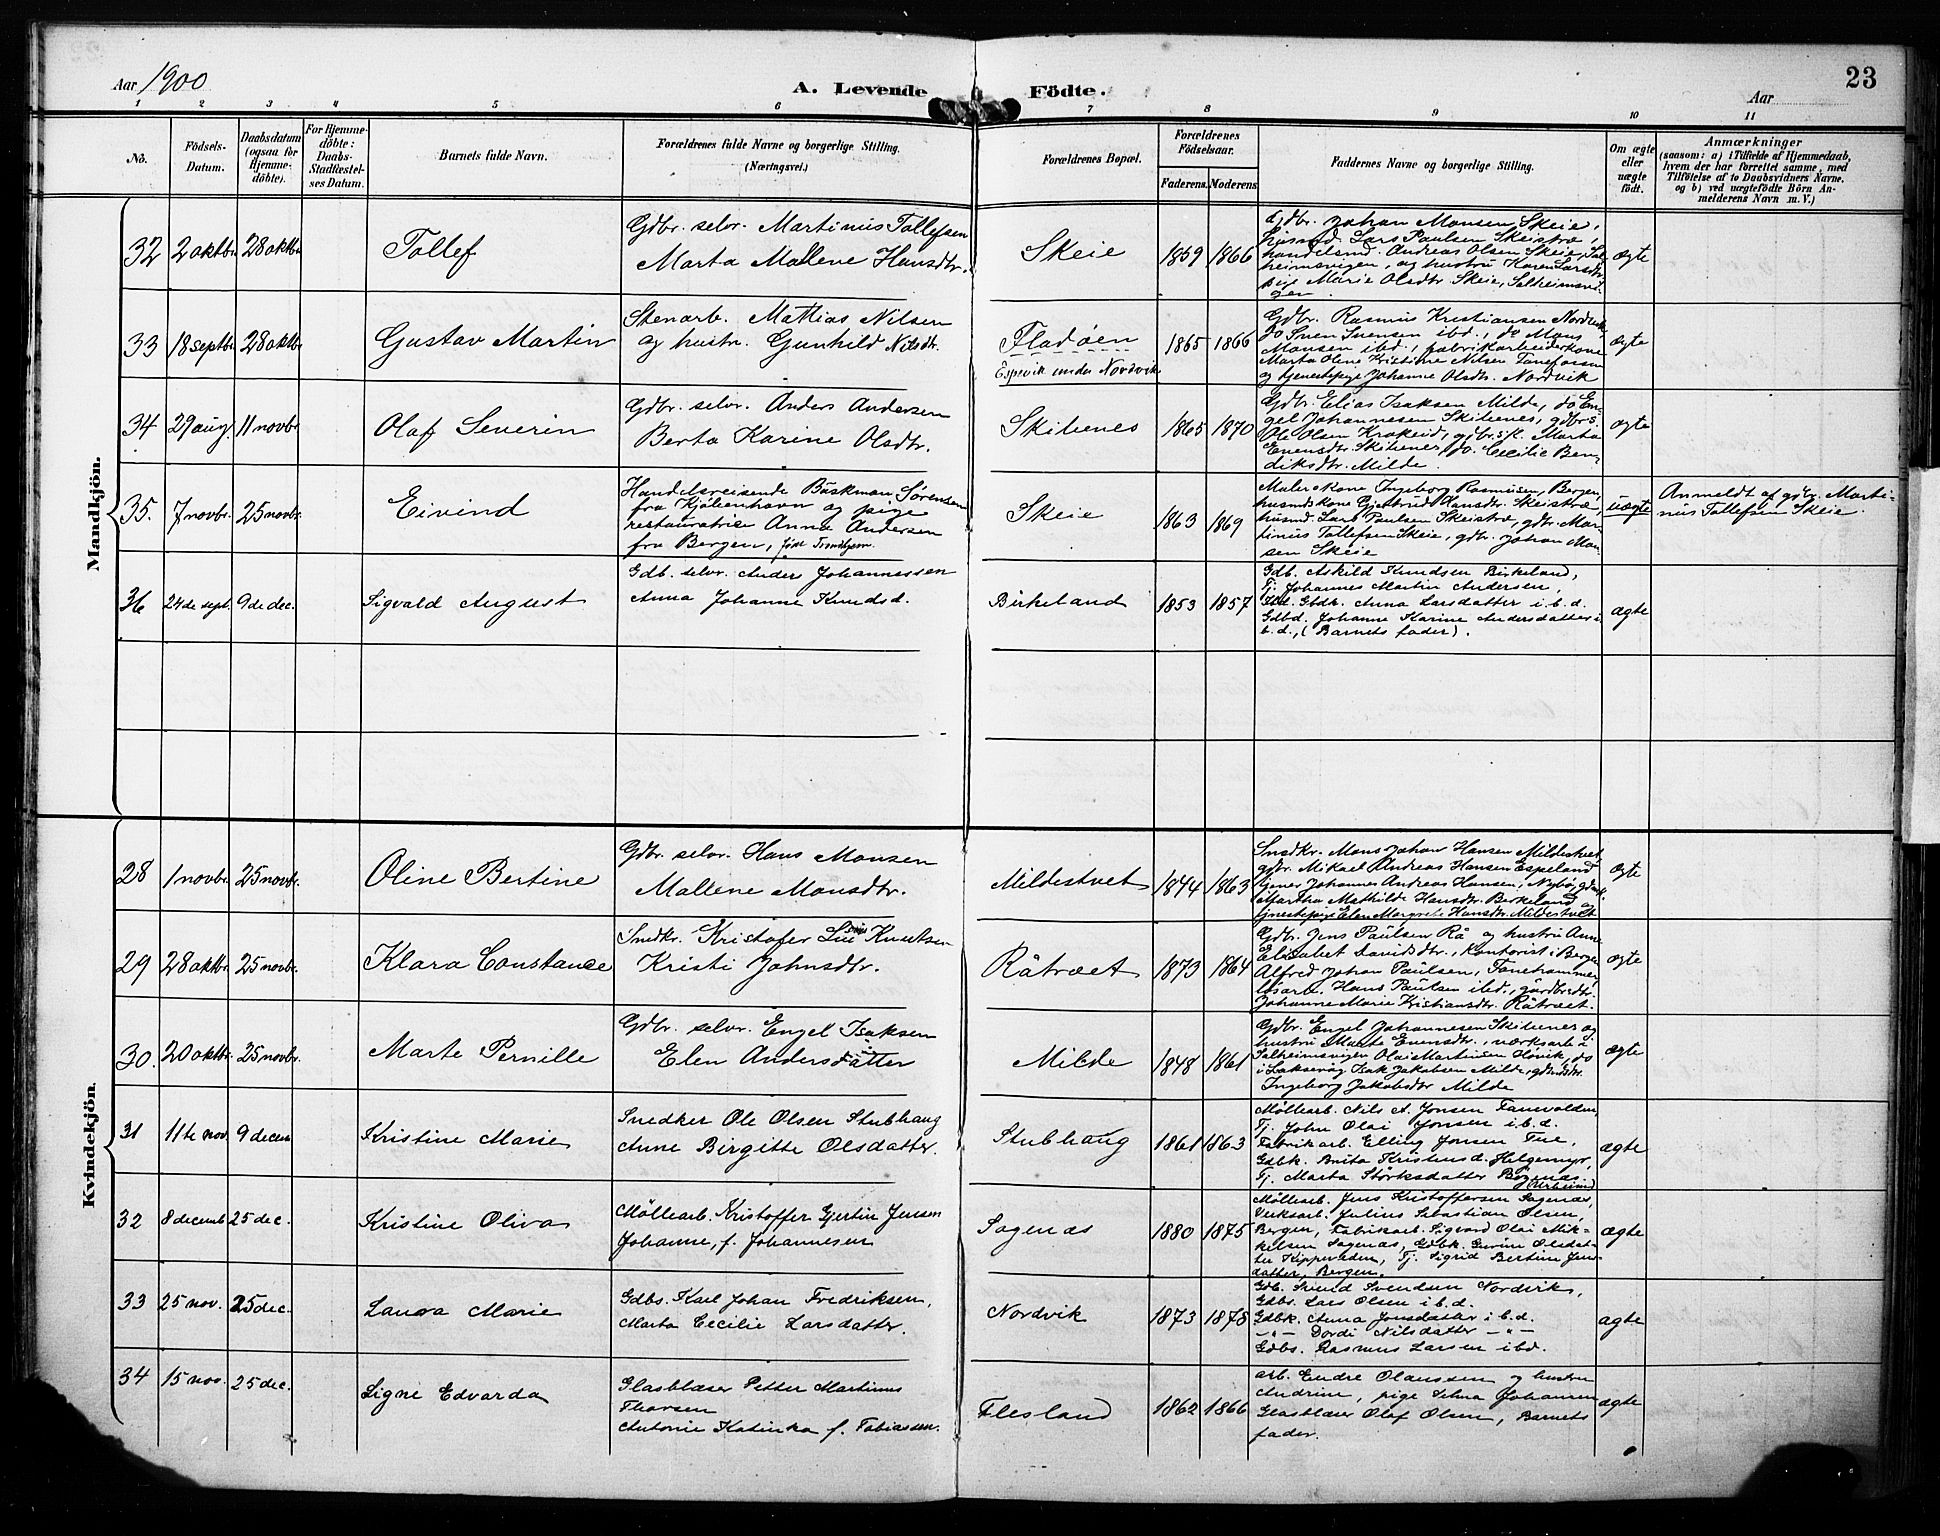 Aar 1900
A. Levende Födte.
Aar
23
1 2 3 4 5 6 7 8 9 10 11
No.
Födsels-Datum.
Daabsdatum (ogsaa for Hjemme-döbte).
For Hjemme-döbte: Daabs-Stadfæstel-ses Datum.
Barnets fulde Navn.
Forældrenes fulde Navne og borgerlige Stilling. (Næringsvei.)
Forældrenes Bopæl.
Forældrenes Födselsaar.
Faderens. Moderens.
Faddernes Navne og borgerlige Stilling.
Om ægte eller uægte födt.
Anmærkninger
(saasom: a) i Tilfælde af Hjemmedaab,
hvem der har forrettet samme, med
Tilföielse af to Daabsvidners Navne,
og b) ved uægtefödte Börn An-
melderens Navn m. V.)
Mandkjön.
32 2 oktbr. 28 oktbr. Tollef
Gdbr. selvr. Martinus Tollefsen
Marta Mallene Hansdtr.
Skeie 1859 1866
Gdbr. Johan Monsen Skeie,
husmd. Lars Paulsen Skeistrø,
handelsmd. Andreas Olsen Skeie, Sol-
heimsvigen, og hustru Karen Larsdtr.
pige Marie Olsdtr. Skeie, Solheimsvi-
gen.
ægte
33 18 septbr. 28 oktbr. Gustav Martin
Stenarb. Mattias Nilsen
og hustr. Gunhild Nilsdtr.
Fladøen
Espevik under Nordvik
1865 1866
Gdbr. Rasmus Kristiansen Nordvik,
do Sven Svensen ibd., do Mons
Monsen ibd., fabrikarbeiderkone
Marta Oline Kristine Nilsen Fanefossen
og tjenestepige Johanne Olsdtr. Nordvik
ægte
34 29 aug. 11 novbr. Olaf Severin
Gdbr. selvr. Anders Andersen
Berta Karine Olsdtr.
Skibenes 1865 1870
Gdbr. Elias Isaksen Milde, do En-
gel Johannesen Skibenes, gdbrs.
Ole Olsen Krokeid, gdbrsk. Marta
Evensdtr. Skibenes, do. Cecilie Ben-
diksdtr. Milde.
ægte
35. 7 novbr. 25 novbr. Eivind
Handelsreisende Bäskman Sørensen
fra Kjøbenhavn og pige
restauratrice Anna Andersen
fra Bergen, født Trondhjem.
Skeie 1863 1869
Malerkone Ingeborg Rasmusen, Bergen,
husmdskone Gjertrud Hansdtr. Skeistrø,
husmd. Lars Paulsen Skeistrø, gdbr. Mar-
tinus Tollefsen Skeie, gdbr. Johan Mon-
sen Skeie
uægte
Anmeldt af gdbr. Marti-
nus Tollefsen Skeie.
36 24de sept. 9de dec. Sigvald August
Gdb. selvr. Anders Johannessen
Anna Johanne Knudsd.
Birkeland 1853 1857
Gdb. Askild Knudsen Birkeland,
Tj. Johannes Martin Andersen,
ibd. Gbdk. Anna Larsdatter i.b.d.
Gdbd. Johanne Karine Andersdatter i
b.d., (Barnets fader).
ægte
Kvindekjön.
28 1 novbr. 25 novbr. Oline Bertine
Gdbr. selvr. Hans Monsen
Mallene Monsdtr.
Mildestvet 1844 1863
Snedkr. Mons Johan Hansen Mildestvet,
gdbr. Mikael Andreas Hansen Espeland
tjener Johannes Andreas Hansen, Nybø, gdmk.
Martha Mathilde Hansdtr. Berkeland og
tjnestepige Elen Margrete Hansdtr. Mildestvet
ægte
29 28 oktbr. 25 novbr. Klara Constance
Snedkr. Kristofer Knutsen
Kristi Johnsdtr.
Råtræet 1873 1864
Gdbr. Jens Paulsen Rå og hustru Anne
Elisabet Davidsdtr., kontorist i Bergen
Alfred Johan Paulsen, Fanehammer,
løsarb. Hans Paulsen ibd., gårdbrdtr.
Johanne Marie Kristiansdtr. Råtræet.
ægte
30. 20 oktbr. 25 novbr. Marte Pernille
Gdbr. selvr. Engel Isaksen
Elen Andersdatter
Milde 1848 1861
Gdbr. Engel Johannesen Skibenes og
hustru Marta Evensdtr., værksarb. i
Solheimsvigen Olai Martinsen Høvik, do
i Laksevåg Isak Jakobsen Milde, gdmdsdtr.
Ingeborg Jakobsdtr Milde
ægte
31 11te nov. 9 decem Kristine Marie
Snedker Ole Olsen Stubhaug
Anne Birgitte Olsdatter.
Stubhaug 1861 1863
Møllearb. Nils A. Jonsen Fanevolden,
Tj. John Olai Jonsen i.b.d.
Fabrikarb. Elling Jonsen Tue,
Gdbk. Brita Kristensd. Helgemyr,
Tj. Marta Størksdatter Bøgenæs
ægte
32 8 decemb 25 dec. Kristine Oliva
Møllearb. Kristoffer Gjertin Jensen
Johanne, f. Johannesen
Sagenæs 1880 1875
Møllearb. Jens Kristoffersen Sagenæs,
Verksarb. Julius Sebastian Olsen,
Bergen, Fabrikarb. Sigvard Olai Mik-
kelsen Sagenæs, Gdbk. Gurine Olsdat-
ter Kipperaden, Tj. Sigrid Bertine Jens
datter, Bergen.
ægte
33 25 nov. 25 dec. Laura Marie
Gdbs. Karl Johan Fredriksen,
Marta Cecilie Larsdatter.
Nordvik 1873 1878
Gdb. Svend Svendsen Nordvik,
Gdbs. Lars Olsen i.b.d.
Gdbk. Anna Jonsdatter i b.d.
-"- Dordi Nilsdatter -"-
Gdbs. Rasmus Larsen ibd.
ægte
34 15 nov. 25 dec. Signe Edvarda
Glasblæser Petter Martinus
Thorsen
Antonie Katinka f. Tobiassen.
Flesland 1862 1866
arb. Endre Olaussen og hustru
Andrine, pige Selma Johansen
Glasblæser Olaf Olsen, Barnets
fader.
ægte